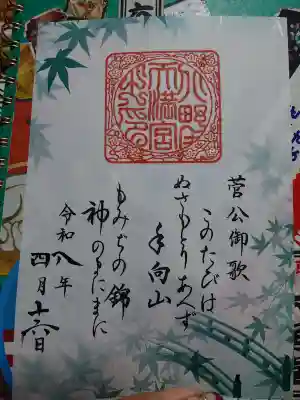 菅公御歌
このたびは
ぬさもとりあへず
手向山
もみぢの錦
神のまにまに
令和八年
四月十六日